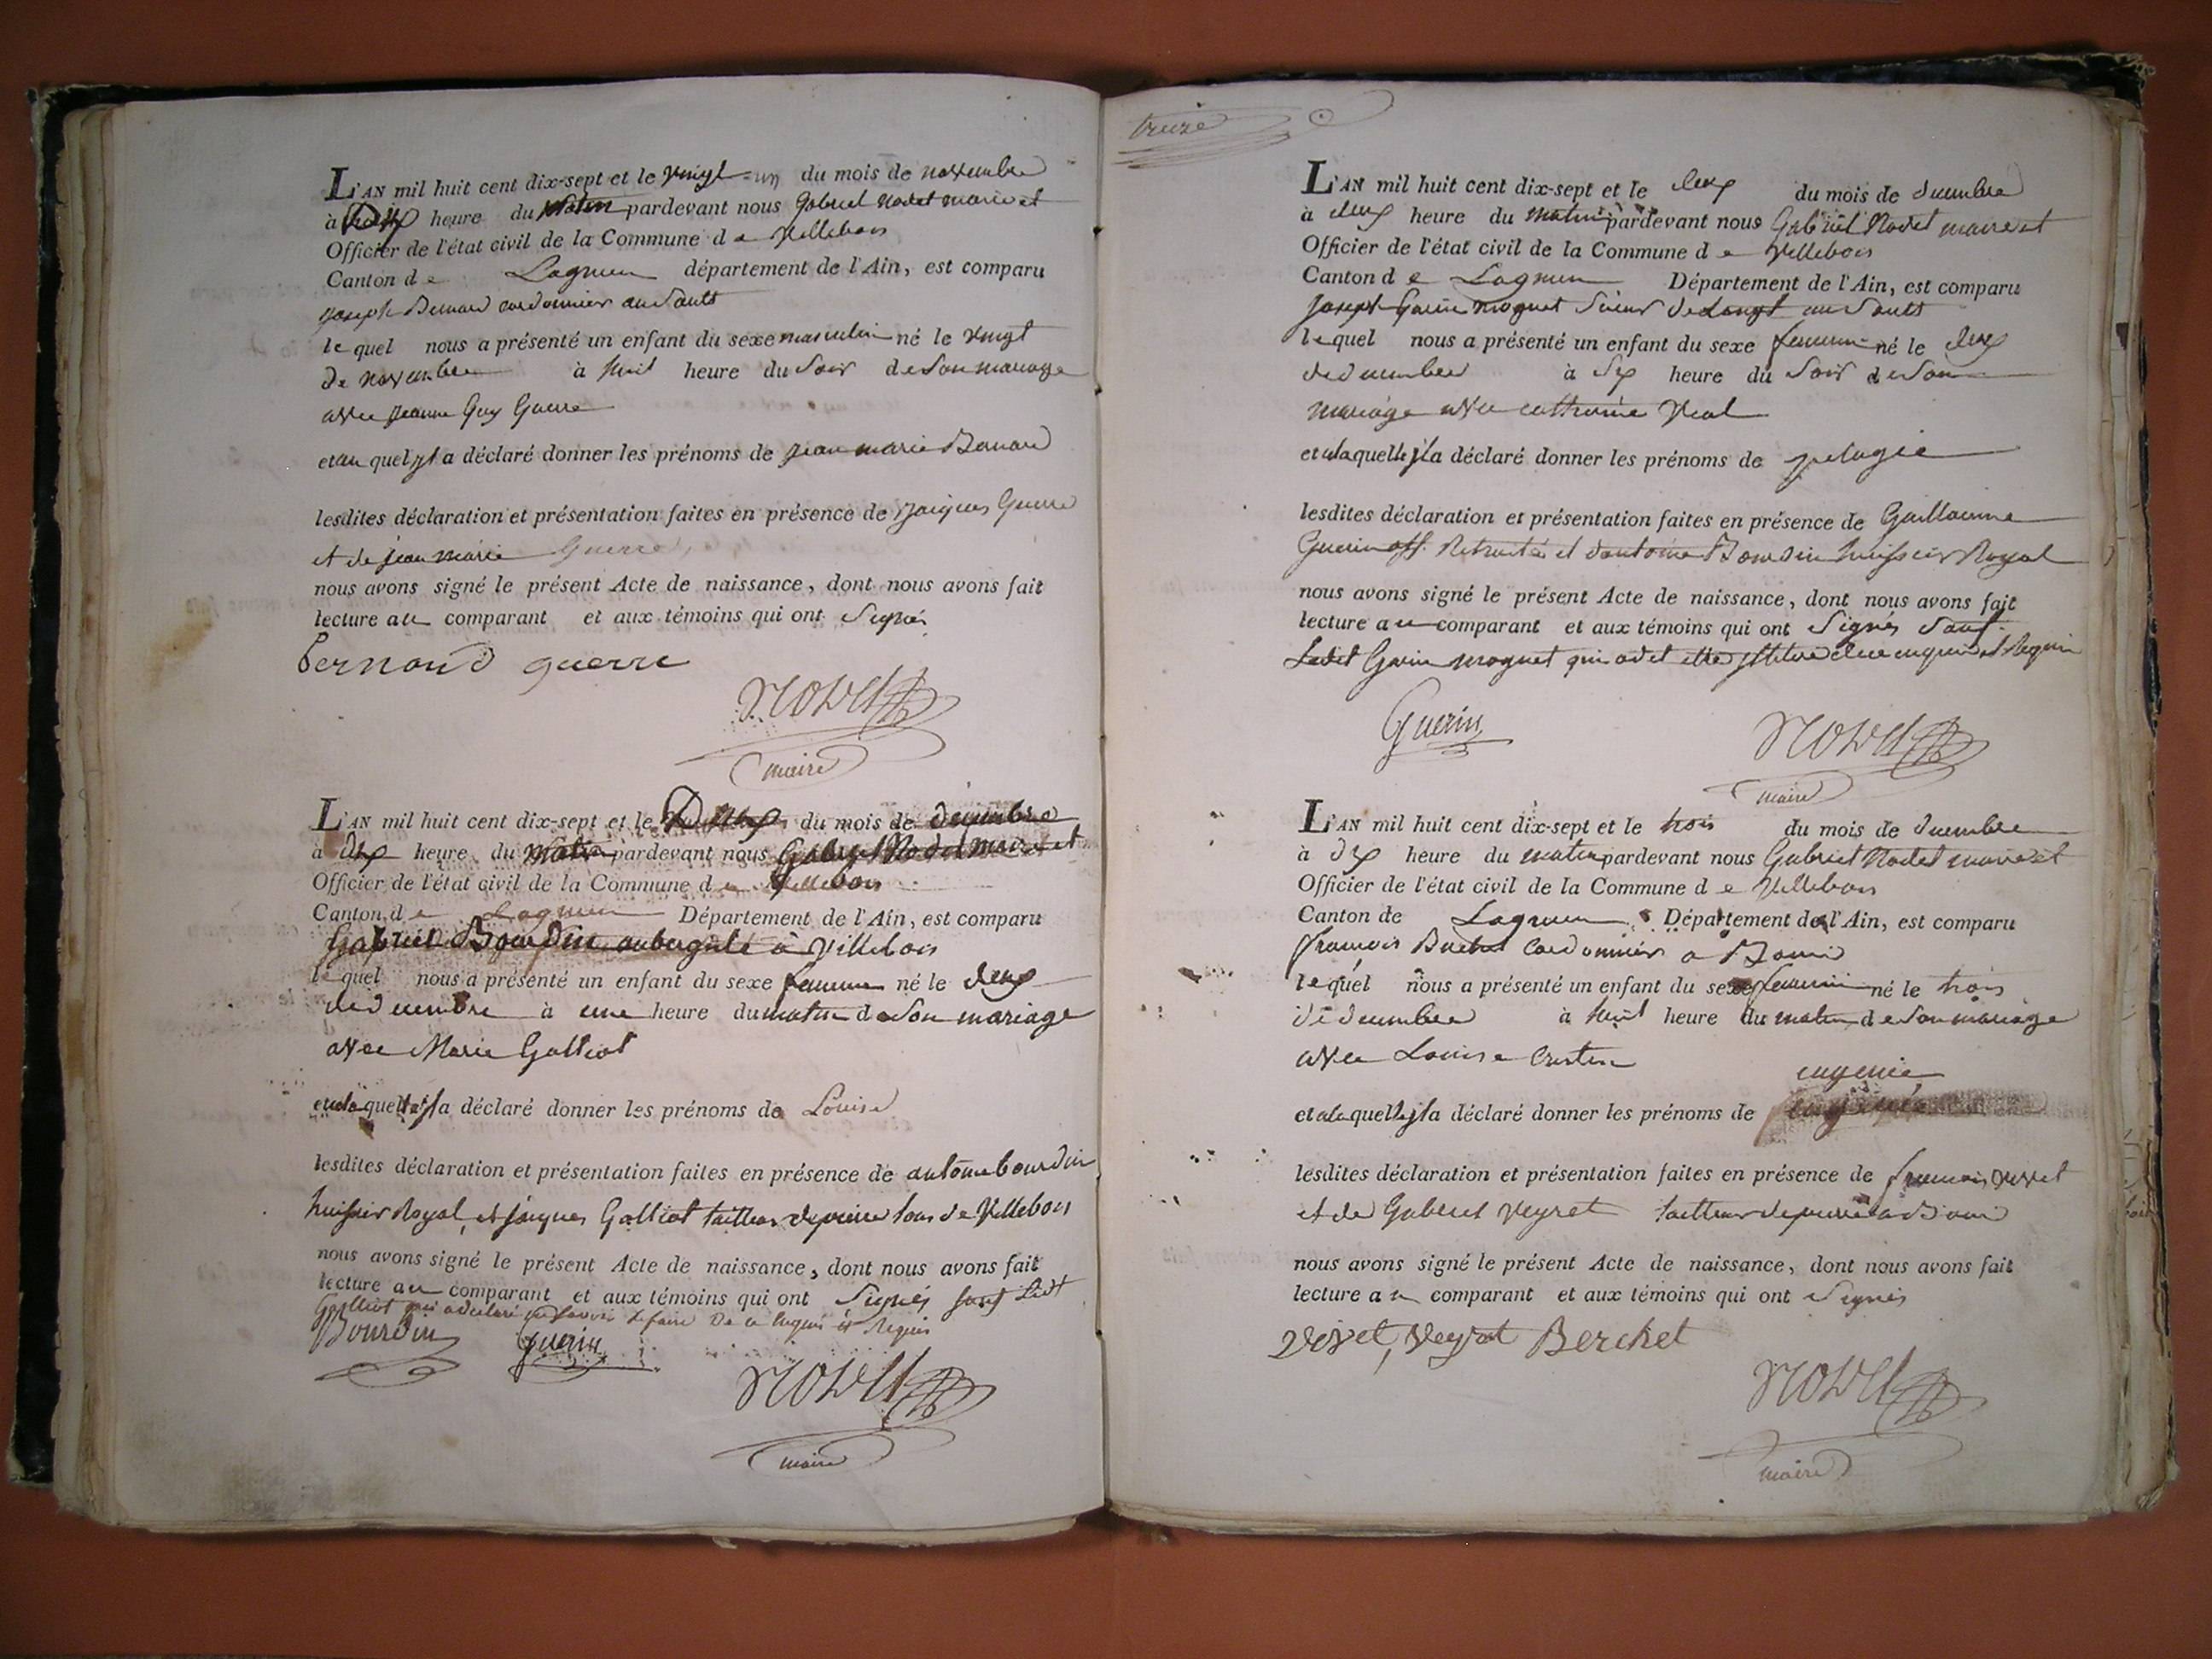 L'AN mil huit cent dix-sept et le vingt-un du mois de novembre
à Dix heure du matin pardevant nous Gabriel Nodet maire et
Officier de l'état civil de la Commune de Villebois
Canton de Lagnieu département de l'Ain, est comparu
joseph Bernard cordonnier au Sault
lequel nous a présenté un enfant du sexe masculin né le vingt
de novembre à huit heure du soir de son mariage
avec jeanne Guy Guerre
et au quel il a déclaré donner les prénoms de jean marie Bernard
lesdites déclaration et présentation faites en présence de jacques Guerre
et de jean marie Guerre
nous avons signé le présent Acte de naissance, dont nous avons fait
lecture au comparant et aux témoins qui ont Signés
Bernard guerre
NODET
maire
L'AN mil huit cent dix-sept et le Deux du mois de décembre
à dix heure du matin pardevant nous Gabriel Nodet maire et
Officier de l'état civil de la Commune de Villebois
Canton de Lagnieu Département de l'Ain, est comparu
Gabriel Bourdin aubergiste à Villebois
lequel nous a présenté un enfant du sexe feminin né le deux
de decembre à une heure du matin de son mariage
avec Marie Galliot
et à la quelle il a déclaré donner les prénoms de Louise
lesdites déclaration et présentation faites en présence de antoine bourdin
huissier Royal et jacques Galliot tailleur de pierre tous de Villebois
nous avons signé le présent Acte de naissance, dont nous avons fait
lecture au comparant et aux témoins qui ont Signés sauf Ledt
Galliot qui a déclaré ne savoir le faire De ce enquis et Requis
Bourdin Guerin
NODET
maire
treize
L'AN mil huit cent dix-sept et le deux du mois de decembre
à deux heure du matin pardevant nous Gabriel Nodet maire et
Officier de l'état civil de la Commune de Villebois
Canton de Lagnieu Département de l'Ain, est comparu
joseph Garin moguet au Sault
lequel nous a présenté un enfant du sexe feminin né le deux
de decembre à six heure du soir de son
mariage avec catherine Vial
et à laquelle il a déclaré donner les prénoms de pelagie
lesdites déclaration et présentation faites en présence de Guillaume
Guerin off. Retraité et d'antoine Bourdin huissier Royal
nous avons signé le présent Acte de naissance, dont nous avons fait
lecture au comparant et aux témoins qui ont Signés Sauf
Ledit Garin moguet qui a dit être illitéré de ce enquis et Requis
Guerin
NODET
maire
L'AN mil huit cent dix-sept et le trois du mois de decembre
à dix heure du matin pardevant nous Gabriel Nodet maire et
Officier de l'état civil de la Commune de Villebois
Canton de Lagnieu Département de l'Ain, est comparu
françois Berchet Cordonnier a Bouis
lequel nous a présenté un enfant du sexe feminin né le trois
de decembre à huit heure du matin de son mariage
avec Louise Cristin
eugenie
et à laquelle il a déclaré donner les prénoms de
lesdites déclaration et présentation faites en présence de françois vivet
et de Gabriel Veyret tailleur de pierre à Bouis
nous avons signé le présent Acte de naissance, dont nous avons fait
lecture au comparant et aux témoins qui ont Signés
vivet, Veyret Berchet
NODET
maire